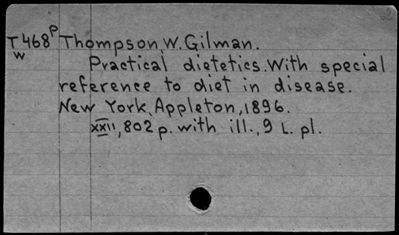 T468ᵖ Thompson, W. Gilman.
W Practical dietetics. With special
reference to diet in disease.
New York, Appleton, 1896.
xxii, 802 p. with ill., 9 L. pl.